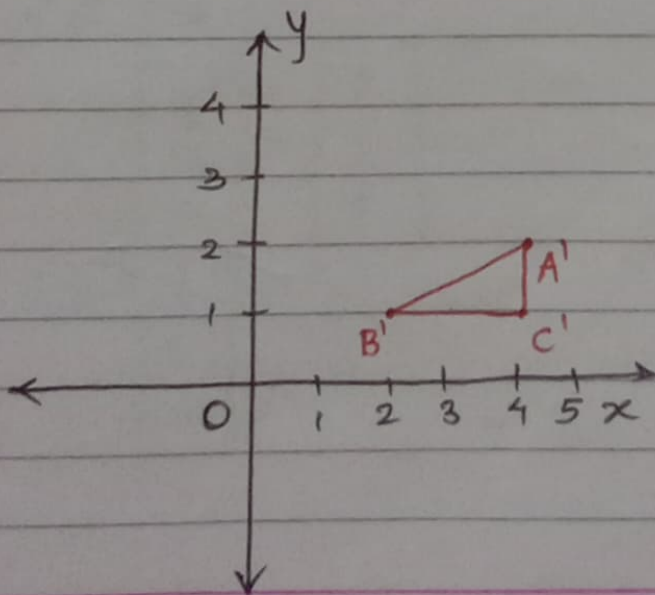 y
4
3
2
A'
1
B' C'
0 1 2 3 4 5 x